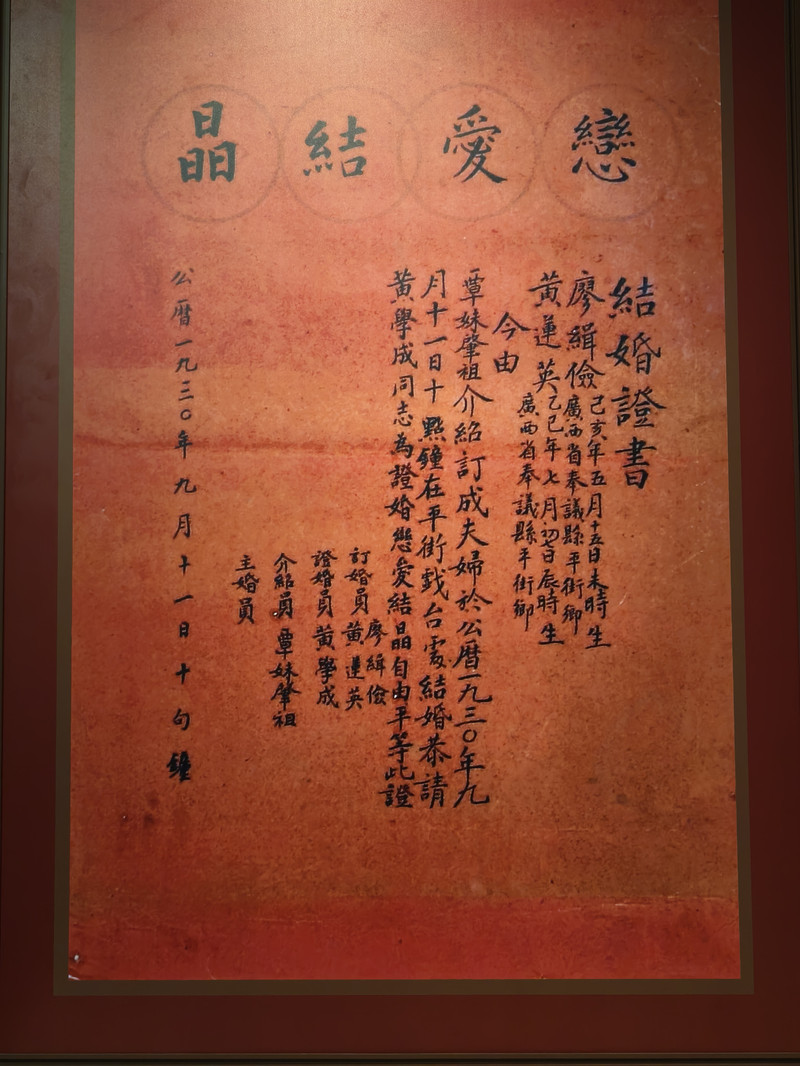 戀愛結晶
結婚證書
廖緝儉己亥年五月十五日未時生
廣西省奉議縣平街鄉
黃蓮英乙巳年七月初七日辰時生
廣西省奉議縣平街鄉
今由
覃妹肇祖介紹訂成夫婦於公曆一九三〇年九
月十一日十點鐘在平街戲台處結婚恭請
黃學成同志為證婚戀愛結晶自由平等此證
訂婚員廖緝儉
黃蓮英
證婚員黃學成
介紹員覃妹肇祖
主婚員
公曆一九三〇年九月十一日十句鐘